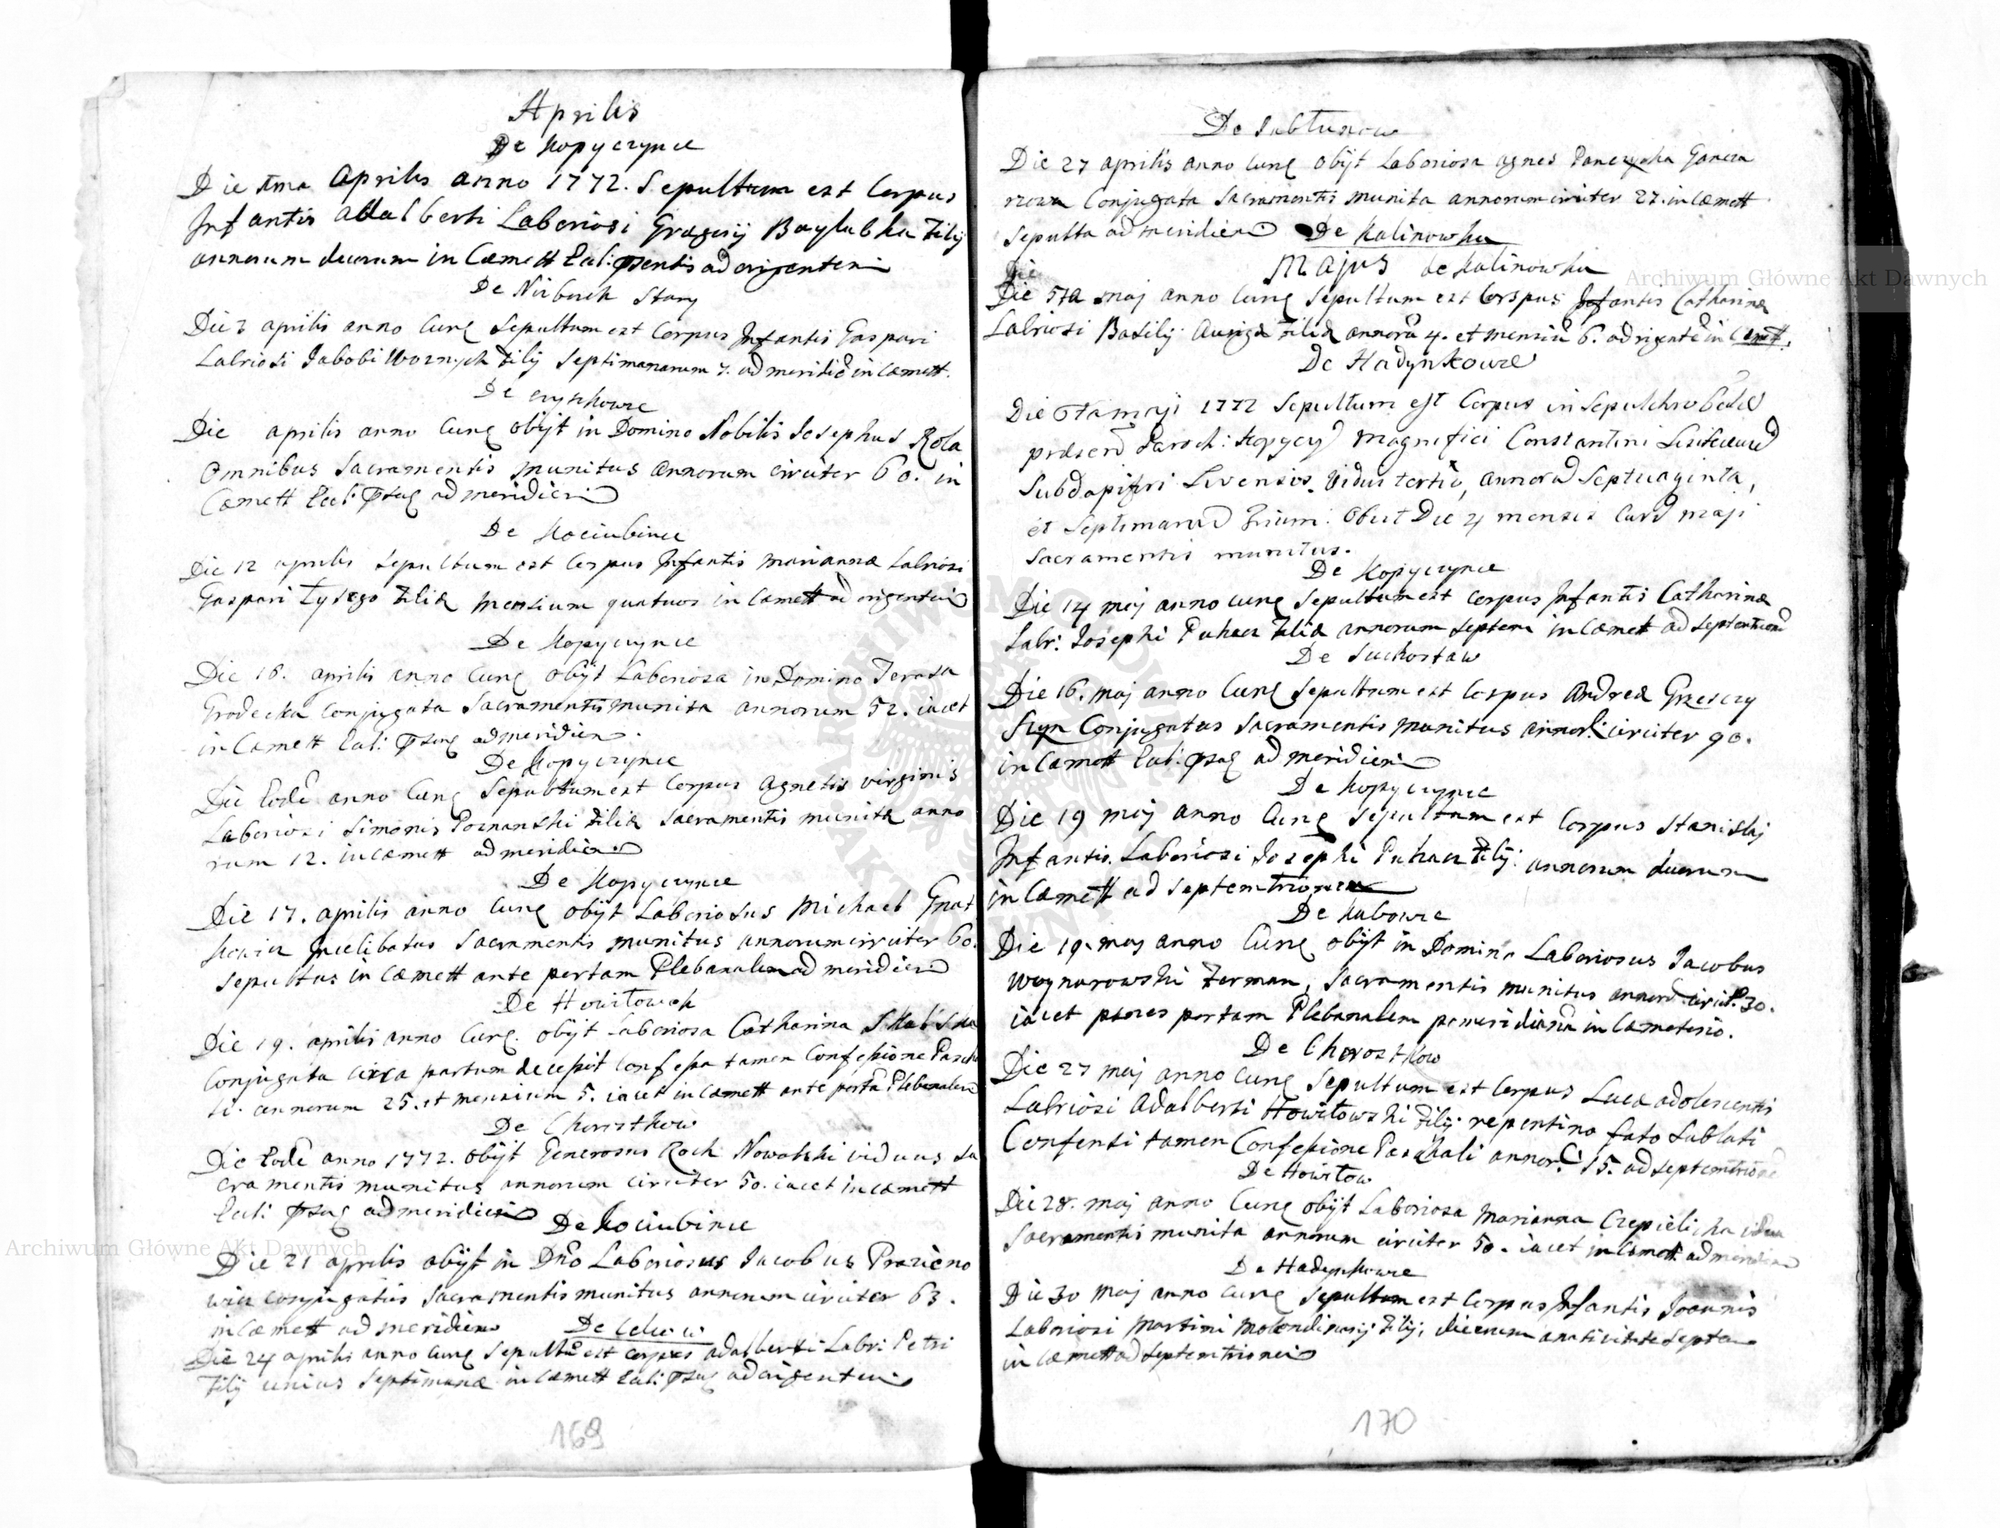 Aprilis
De Kopyczynce
Die 1ma Aprilis anno 1772. Sepultum est Corpus
Infantis Adalberti Laboriosi Gregorij Baylubka Filij
annorum duorum in Cæmett Eccl: psentis ad origentem
De Nizborh Stary
Die 2 aprilis anno Curę Sepultum est Corpus Infantis Gaspari
Labriosi Jabobi Woznych Filij Septimanarum 7. ad meridiē in Cæmett.
De
Die aprilis anno Curę obijt in Domino Nobilis Josephus Rola
Omnibus Sacramentis munitus annorum circiter 60. in
Cæmett Eccl: psaę ad meridiem
De Kociubince
Die 12 aprilis Sepultum est Corpus Infantis Mariannæ Labriosi
Gaspari Łysego Filiæ Mensium quatuor in Cæmett ad origentem
De Kopyczynce
Die 16. aprilis anno Curę obijt Laboriosa in Domino Teresa
Grodecka Conjugata Sacramentis munita annorum 52. iacet
in Cæmett Eccl: psaę ad meridiem.
De Kopyczynce
Die Eodē anno Curę Sepultum est Corpus Agnetis virginis
Laboriosi Simonis Poznanski Filiæ Sacramentis munitæ anno
rum 12. in Cæmett ad meridiem
De Kopyczynce
Die 17. aprilis anno Curę obijt Laboriosus Michael
Incelibatus Sacramentis munitus annorum circiter 60.
Sepultus in Cæmett ante portam Plebanalem ad meridiem
De Howiłowch
Die 19. aprilis anno Curę. obijt Laboriosa Catharina
Conjugata circa partum decepit Confessa tamen Confessione Pasch
li. annorum 25. et mensium 5. iacet in Cæmett ante portā Plebanalem
De Chorostkow
Die Eodē anno 1772. obijt Generosus Roch Nowalski viduus Sa
cramentis munitus annorum circiter 50. iacet in Cæmett
Eccl: psaę ad meridiem De Kociubince
Die 21 aprilis obijt in Dno Laboriosus Jacobus Prozieno
wicz Conjugatus Sacramentis munitus annorum circiter 63.
in Cæmett ad meridiem De Celuiow
Die 24 aprilis anno Curę Sepultū est Corpus Adalberti Labr: Petri
Filij unius Septimanæ in Cæmett Eccl: psaę ad origentem
169
De Jabłunow
Die 27 aprilis anno Curę obijt Laboriosa Agnes Panczycha Gancza
rzowa Conjugata Sacramentis munita annorum circiter 27. in Cæmett
Sepulta ad meridiem De Kalinowka
Majus de Kalinowka
Die
Die 5ta maj anno Curę Sepultum est Corspus Infantis Catharinæ
Labriosi Basilij Aurigæ Filiæ annorū 4. et mensiū 6. ad origentē in Cæmett.
De Hadynkowce
Die majj 1772 Sepultum est Corpus in Sepulchro
Paroch: Kopycz Magnifici Constantini
Subdapiferi Livensis. Vidui tertio, annorum Septuaginta,
et Septimarum Trium: Obiit Die 4 mensis Cur maji
Sacramentis munitus.
De Kopyczynce
Die 14 maj anno Curę Sepultum est Corpus Infantis Catharinæ
Labr: Josephi Puhacz Filiæ annorum Septem in Cæmett ad Septentrionē
De Suchostaw
Die 16. maj anno Curę Sepultum est Corpus Andreæ Grzesczy
szyn Conjugatus Sacramentis munitus annor: circiter 90.
in Cæmett Eccl: psaę ad meridiem
De Kopyczynce
Die 19 maj anno Curę Sepultum est Corpus Stanislaj
Infantis. Laboriosi Josephi Puhacz Filij: annorum duorum
in Cæmett ad Septemtrionem
De Kubowce
Die 19. maj anno Curę obijt in Domino Laboriosus Jacobus
Woynarowski Forman, Sacramentis munitus annorū circit. 30.
iacet penes portam Plebanalem pomeridianā in Cæmeterio.
De Chorostkow
Die 27 maj anno Curę Sepultum est Corpus Lucæ adolescentis
Labriosi Adalberti Howiłowski Filij repentino fato Sublati
Confensi tamen Confessione Paschali annor: 15. ad Septemtrionē
De Howiłow
Die 28. maj anno Curę obijt Laboriosa Marianna Czepielicha vidua
Sacramentis munita annorum circiter 50. iacet in Cæmett ad meridiem
De Hadynkowce
Die 30 maj anno Curę Sepultum est Corpus Infantis Joannis
Labriosi Martini Molendinarij Filij, dierum a nativitate Septem
in Cæmett ad Septemtrionem
170
Archiwum Główne Akt Dawnych
Archiwum Główne Akt Dawnych